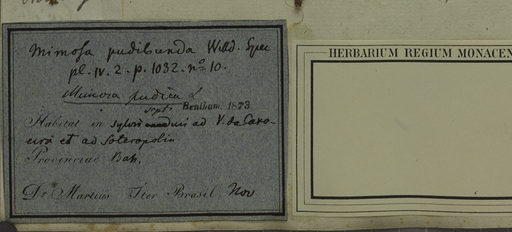 Mimosa pudibunda Willd. Spec
pl. IV. 2. p. 1032. nº 10.
Mimosa pudica L
Bentham. 1873
Habitat in sylvis ad V. da
et ad Soteropolin
Provinciae Bah.
Dr Martius Iter Brasil. Nov
HERBARIUM REGIUM MONACEN